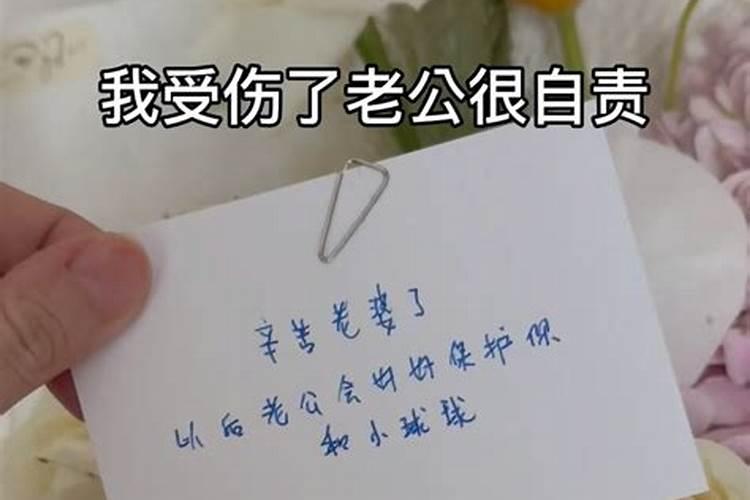 我受伤了老公很自责
辛苦老婆了
以后老公会好好保护你
和小球球